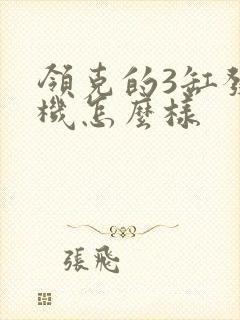 領克的3缸發
機怎麼樣
張飛